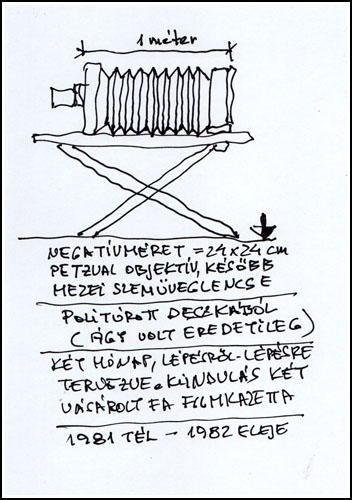 1 méter
NEGATÍVMÉRET = 24 x 24 cm
PETZVAL OBJEKTÍV, KÉSŐBB
MEZEI SZEMÜVEGLENCSE
POLITÚROTT DESZKÁBÓL
(ÁGY VOLT EREDETILEG)
KÉT HÓNAP, LÉPÉSRŐL-LÉPÉSRE
TERVEZVE. KIINDULÁS KÉT
VÁSÁROLT FA FILMKAZETTA
1981 TÉL – 1982 ELEJE